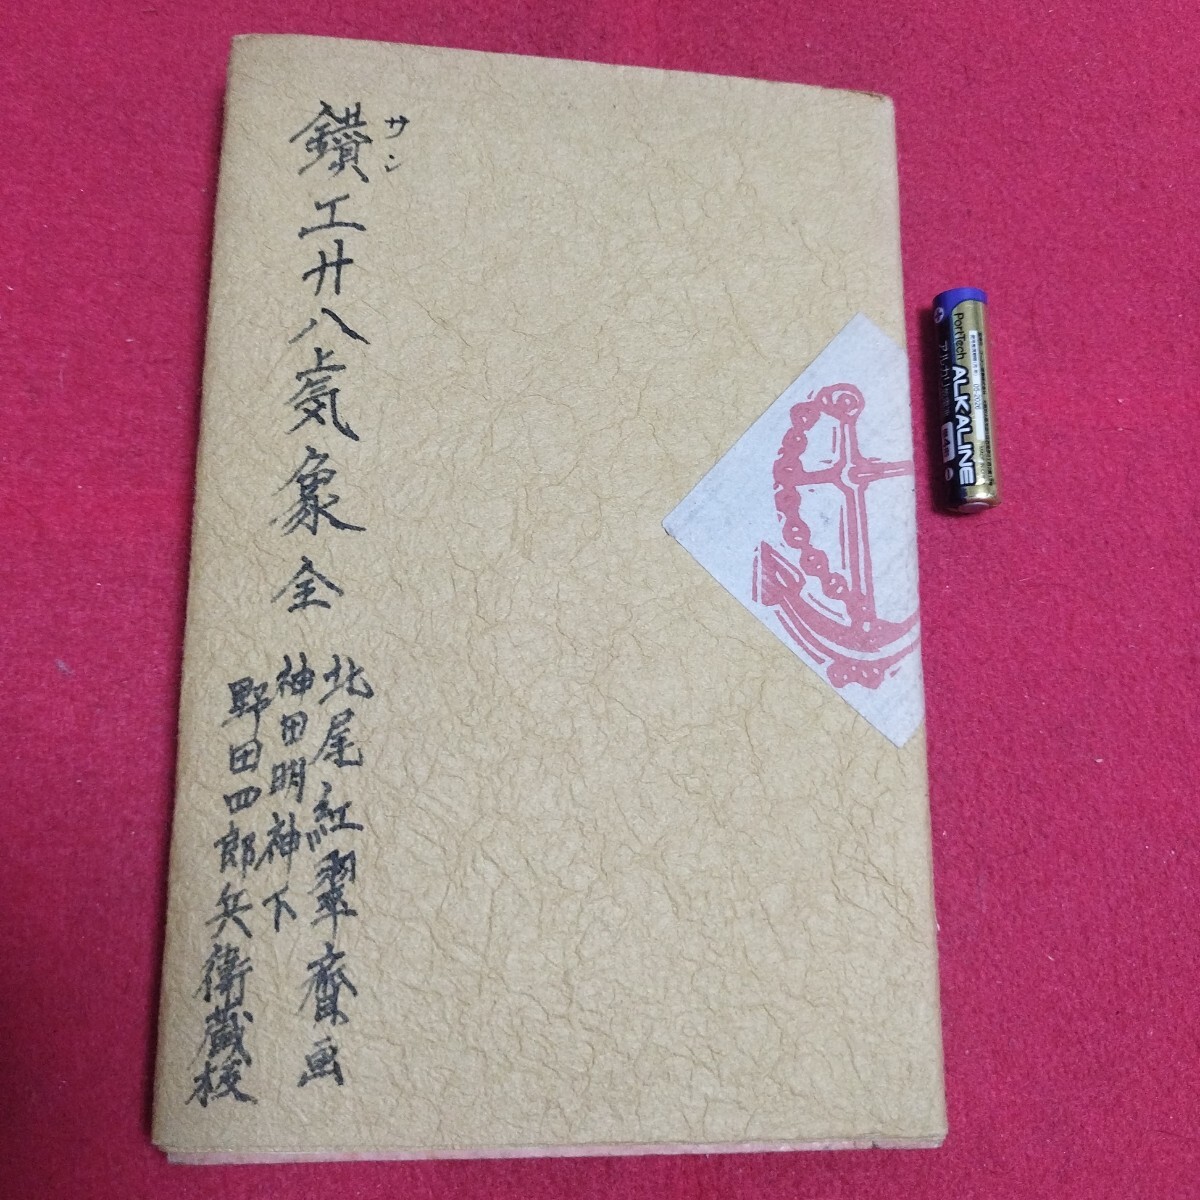 鑽工廿八气気象全
サン
北尾紅翠齋画
神田明神下
野田四郎兵衛蔵板
PortTech
アルカリ乾電池
ALKALINE
05-2026